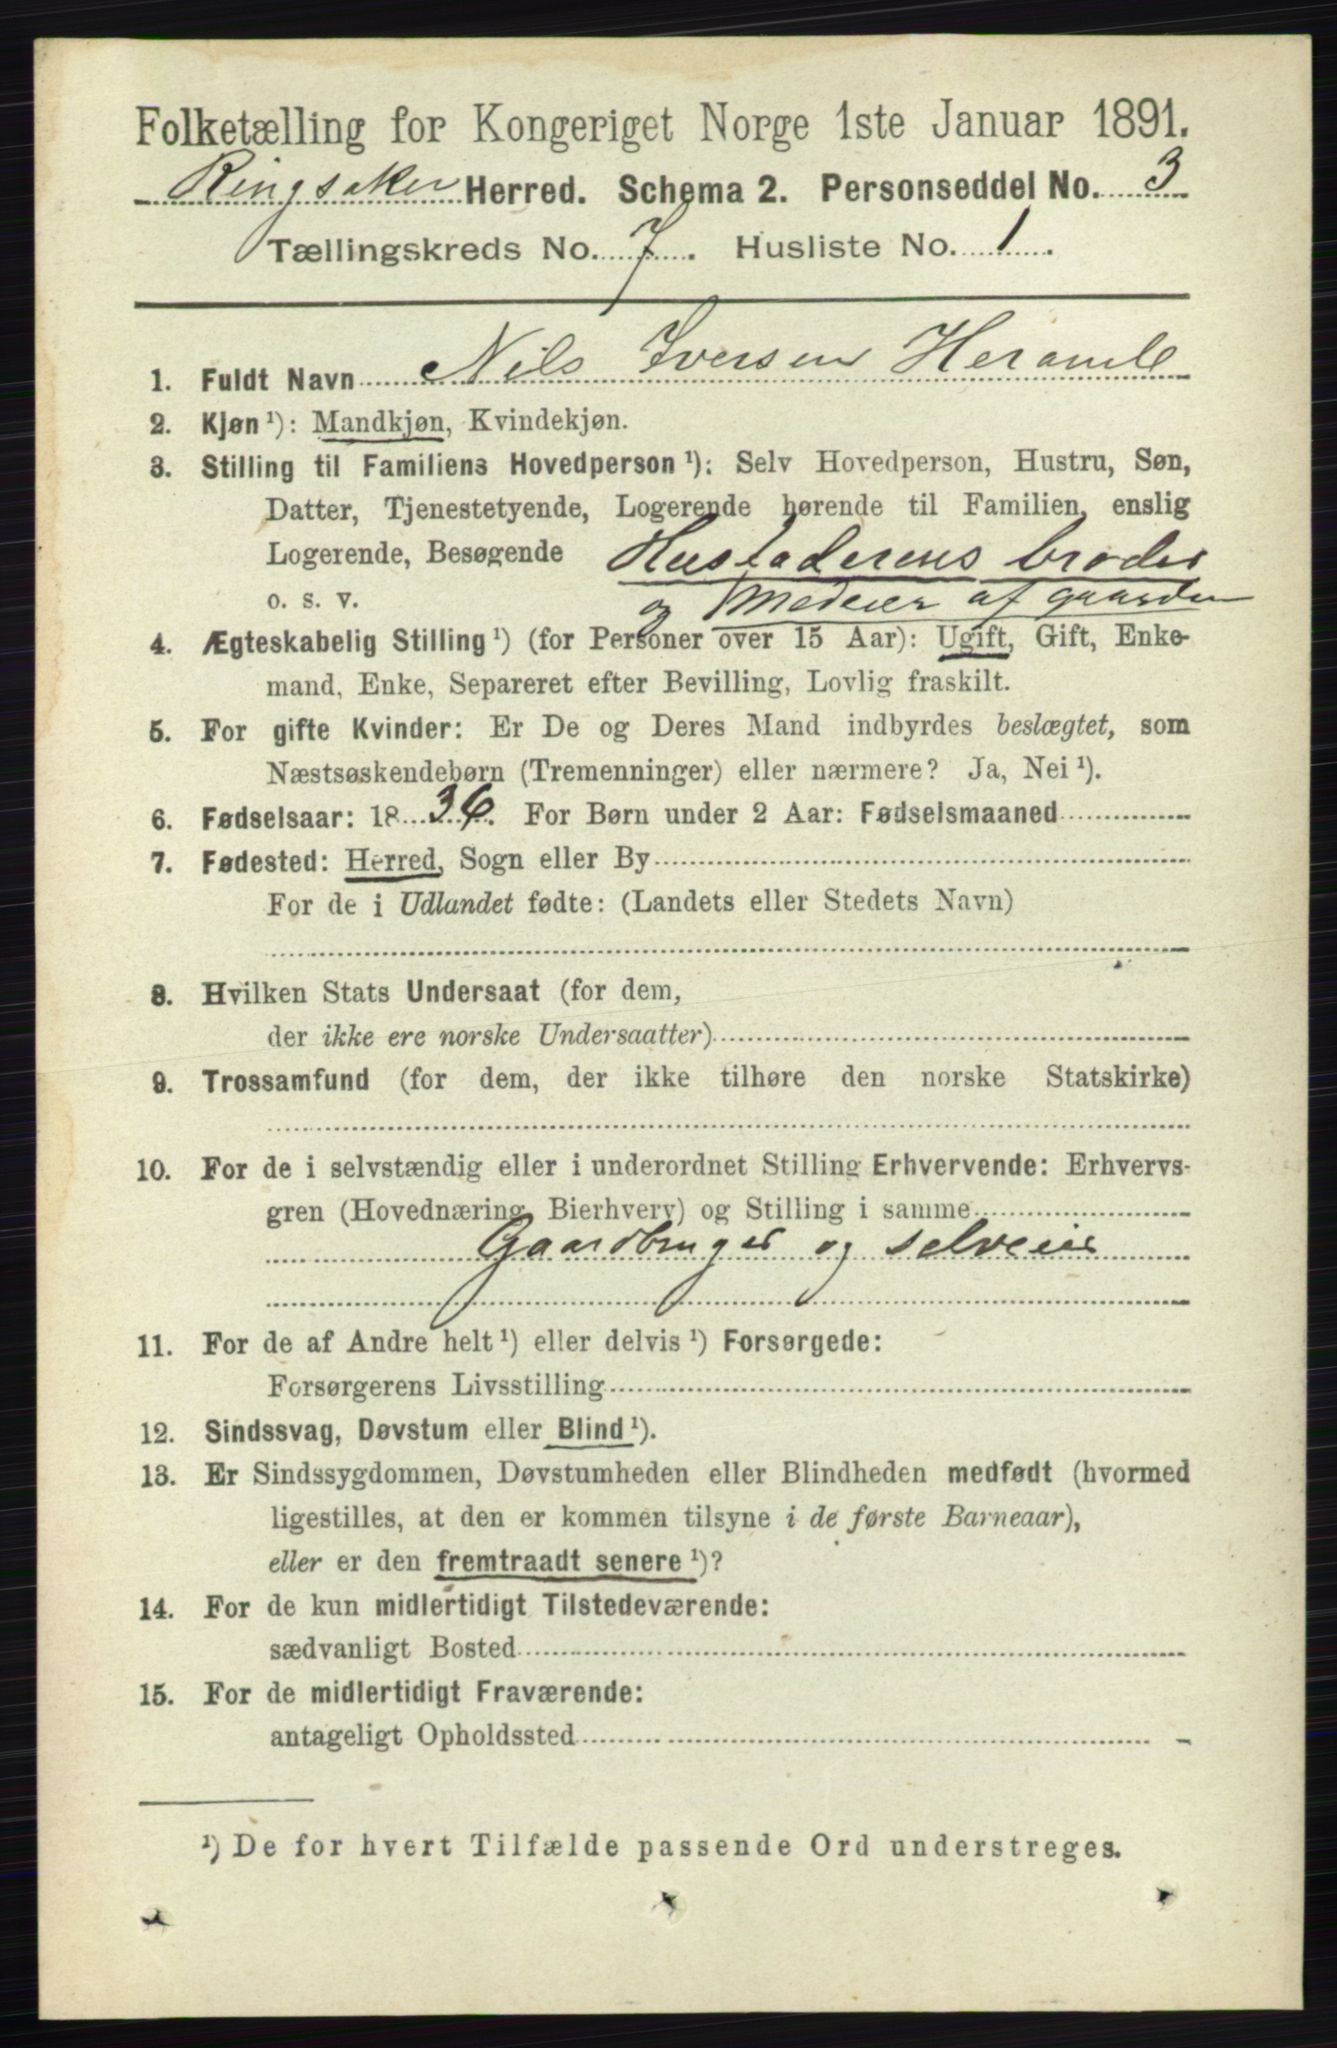 Folketælling for Kongeriget Norge 1ste Januar 1891.
Ringsaker Herred. Schema 2. Personseddel No. 3
Tællingskreds No. 7. Husliste No. 1.
1. Fuldt Navn Nils Iversen
2. Kjøn¹): Mandkjøn, Kvindekjøn.
3. Stilling til Familiens Hovedperson¹): Selv Hovedperson, Hustru, Søn,
Datter, Tjenestetyende, Logerende hørende til Familien, enslig
Logerende, Besøgende Husfaderens broder
o. s. v. og Medeier af gaarden
4. Ægteskabelig Stilling¹) (for Personer over 15 Aar): Ugift, Gift, Enke-
mand, Enke, Separeret efter Bevilling, Lovlig fraskilt.
5. For gifte Kvinder: Er De og Deres Mand indbyrdes beslægtet, som
Næstsøskendebørn (Tremenninger) eller nærmere? Ja, Nei¹).
6. Fødselsaar: 1836. For Børn under 2 Aar: Fødselsmaaned
7. Fødested: Herred, Sogn eller By
For de i Udlandet fødte: (Landets eller Stedets Navn)
8. Hvilken Stats Undersaat (for dem,
der ikke ere norske Undersaatter)
9. Trossamfund (for dem, der ikke tilhøre den norske Statskirke)
10. For de i selvstændig eller i underordnet Stilling Erhvervende: Erhvervs-
gren (Hovednæring, Bierhverv) og Stilling i samme
Gaardbruger og selveier
11. For de af Andre helt¹) eller delvis¹) Forsørgede:
Forsørgerens Livsstilling
12. Sindssvag, Døvstum eller Blind¹).
13. Er Sindssygdommen, Døvstumheden eller Blindheden medfødt (hvormed
ligestilles, at den er kommen tilsyne i de første Barneaar),
eller er den fremtraadt senere¹)?
14. For de kun midlertidigt Tilstedeværende:
sædvanligt Bosted
15. For de midlertidigt Fraværende:
antageligt Opholdssted
¹) De for hvert Tilfælde passende Ord understreges.